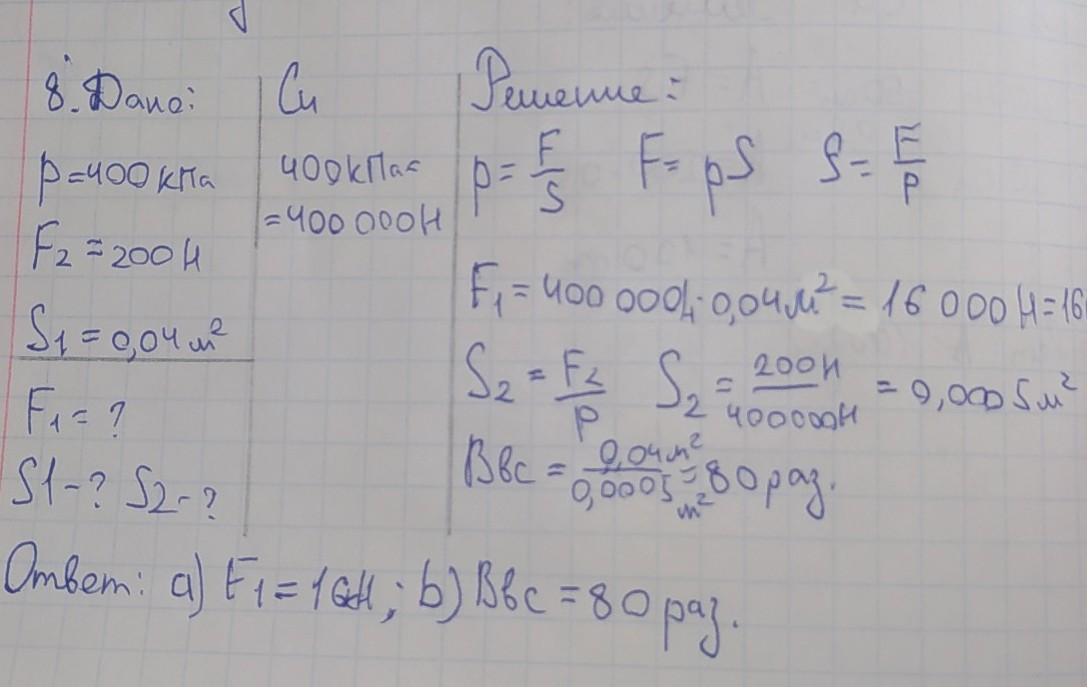 8. Дано:
p=400 кПа
F₂ = 200 Н
S₁ = 0,04 м²
F₁ = ?
S1-? S₂-?
Си
400 кПа=
=400 000 Н
Решение:
p = F/S F = pS S = F/p
F₁ = 400 000 · 0,04 м² = 16 000 Н = 16
S₂ = F₂/p S₂ = 200 Н/400000 Н = 0,0005 м²
Ввс = 0,04 м²/0,0005 м² = 80 раз.
Ответ: а) F₁ = ; b) Ввс = 80 раз.